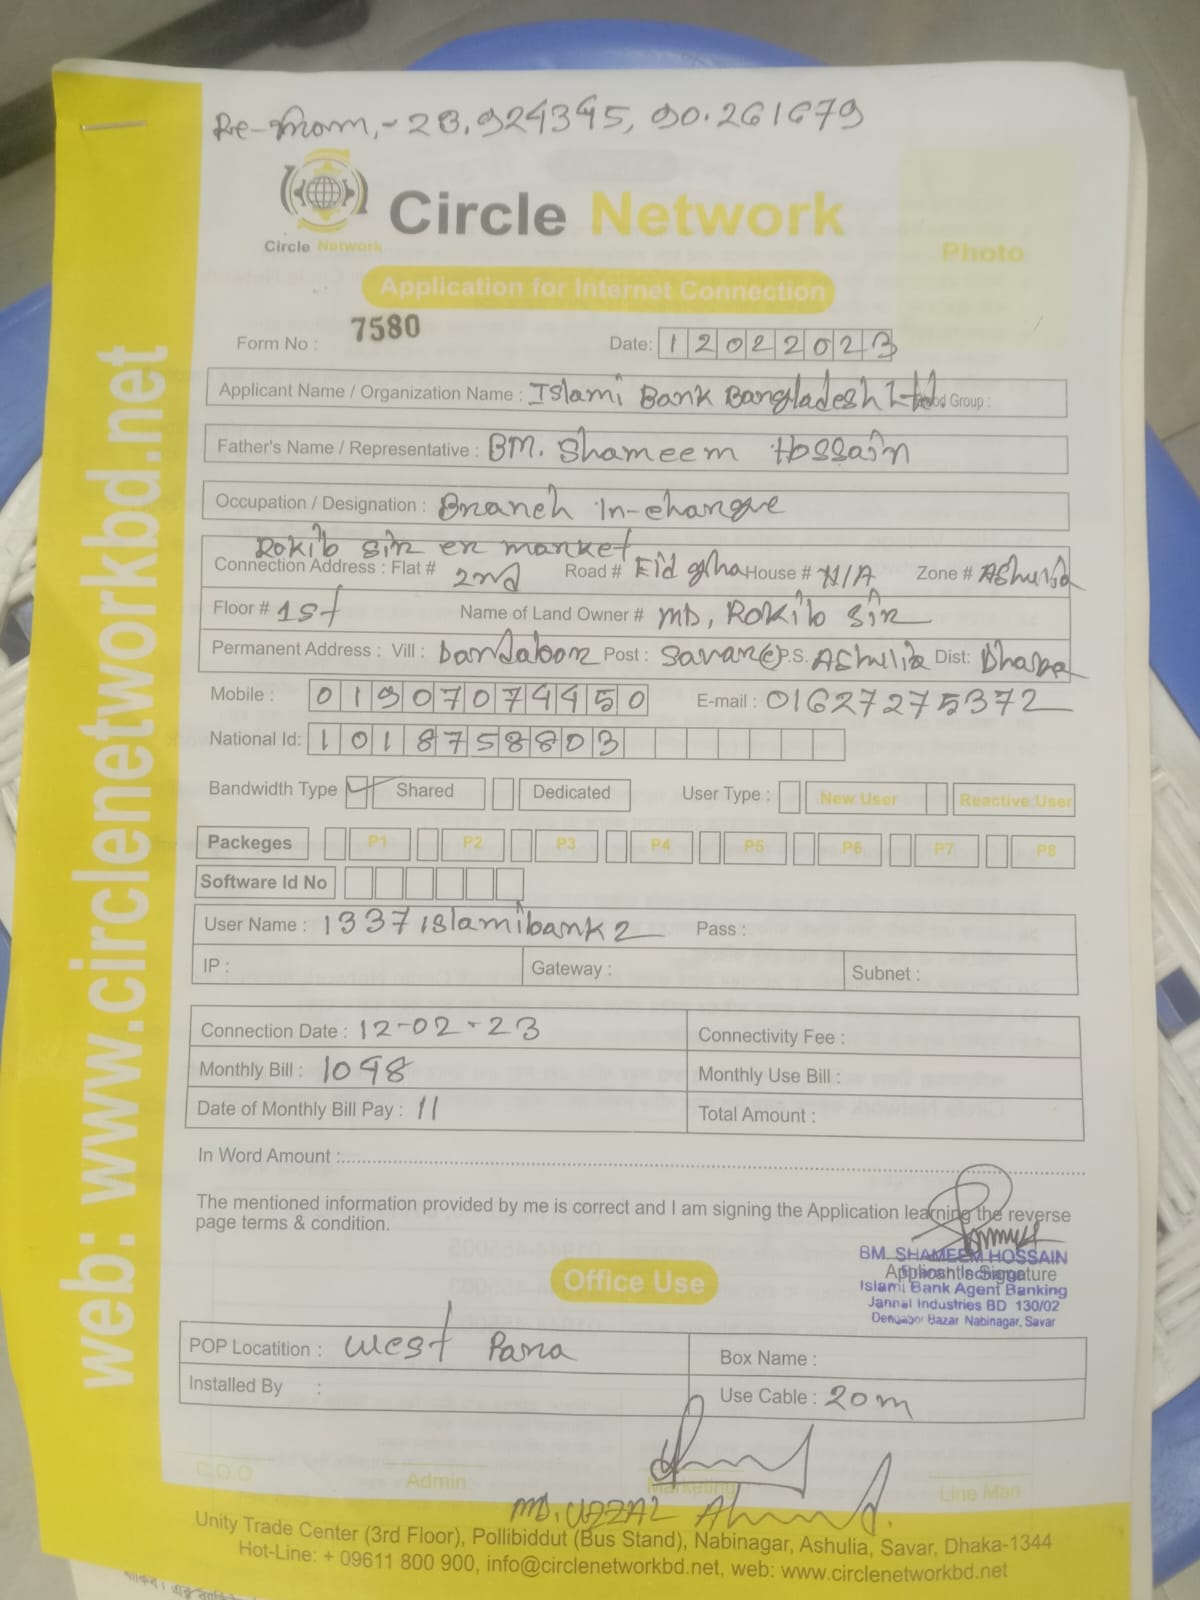 28.924345, 90.261679
Circle Network
Circle Network
Photo
Application for Internet Connection
Form No : 7580 Date: 12022023
Applicant Name / Organization Name : Islami Bank Bangladesh Ltd. Group :
Father's Name / Representative : BM. Shameem Hossain
Occupation / Designation : Branch In-charge
Rokib sir er market
Connection Address : Flat # 2nd Road # Eid gha House # N/A Zone # Ashulia
Floor # 1st Name of Land Owner # MD, Rokib sir
Permanent Address : Vill : Post : Savar P.S. Ashulia Dist: Dhaka
Mobile : 01907074450 E-mail : 01627275372
National Id: 1018758803
Bandwidth Type Shared Dedicated User Type : New User Reactive User
Packeges P1 P2 P3 P4 P5 P6 P7 P8
Software Id No
User Name : 1337islamibank2 Pass :
IP : Gateway : Subnet :
Connection Date : 12-02-23 Connectivity Fee :
Monthly Bill : 1098 Monthly Use Bill :
Date of Monthly Bill Pay : 11 Total Amount :
In Word Amount :
The mentioned information provided by me is correct and I am signing the Application learning the reverse
page terms & condition.
BM. SHAMEEM HOSSAIN
Applicant's Signature
Islami Bank Agent Banking
Jannal Industries BD 130/02
Bazar Nabinagar, Savar
Office Use
POP Locatition : West Para Box Name :
Installed By : Use Cable : 20m
C.O.O Admin Marketing Line Man
MD. UZZAL Ahmed.
Unity Trade Center (3rd Floor), Pollibiddut (Bus Stand), Nabinagar, Ashulia, Savar, Dhaka-1344
Hot-Line: + 09611 800 900, info@circlenetworkbd.net, web: www.circlenetworkbd.net
web: www.circlenetworkbd.net